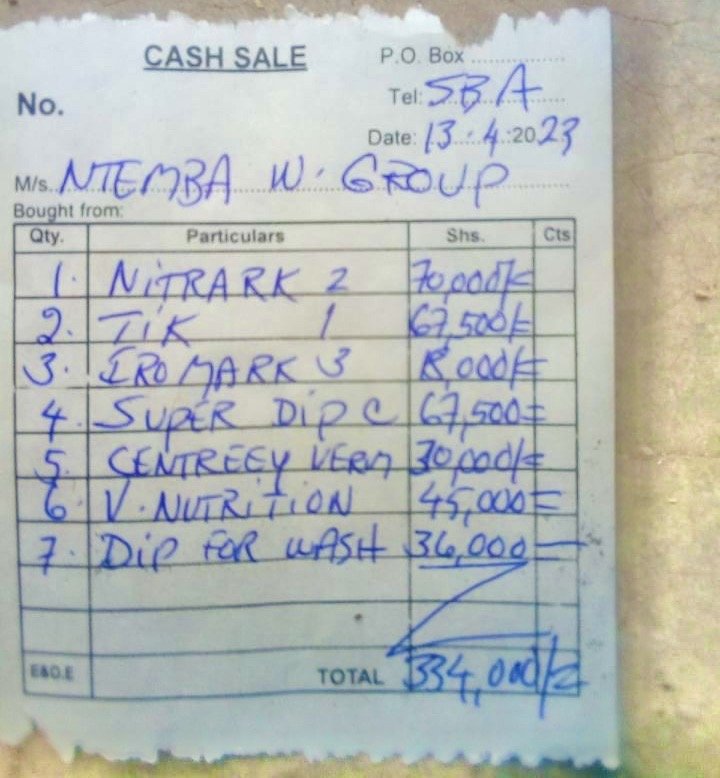 CASH SALE
P.O. Box
No.
Tel: SBA
Date: 13.4.2023
M/s. NTEMBA W. GROUP
Bought from:
Qty. Particulars Shs. Cts
1. NITRARK 2 70,000/=
2. TIK 1 67,500/=
3. IROMARK 3 18,000/=
4. SUPER DIP C 67,500=
5. CENTREEY VERM 30,000/=
6. V. NUTRITION 45,000=
7. DIP FOR WASH 36,000=
E&O.E TOTAL 334,000/=